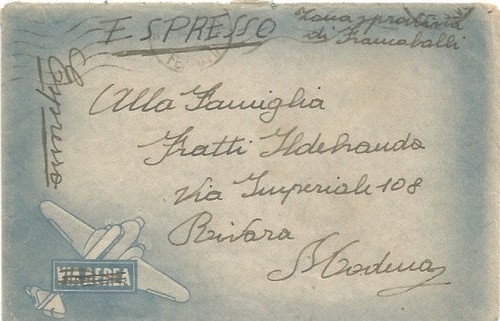 ESPRESSO
Zona sprovvista
di Francobolli
Espresso
Alla Famiglia
Fratti Ildebrando
Via Imperiale 108
Rivara
Modena
VIA AEREA